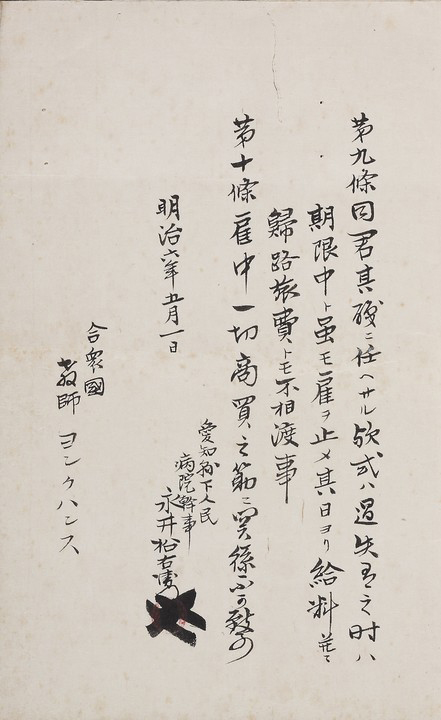 第九條同君其職ニ任ヘサル欤或ハ過失有之時ハ
期限中ト雖モ雇ヲ止メ其日ヨリ給料並ニ
歸路旅費トモ不相渡事
第十條雇中一切商買之筋ニ関係不可致事
明治六年五月一日
愛知縣下人民
病院幹事
永井松右衛門
合衆國
教師 ヨンクハンス